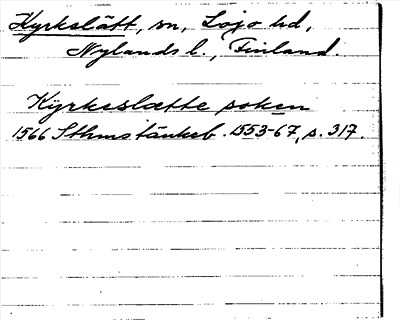 Kyrkslätt, sn, Lojo hd,
Nylands l., Finland.
Kyrkeslætte soken
1566 Sthms tänkeb. 1553-67, s. 317.